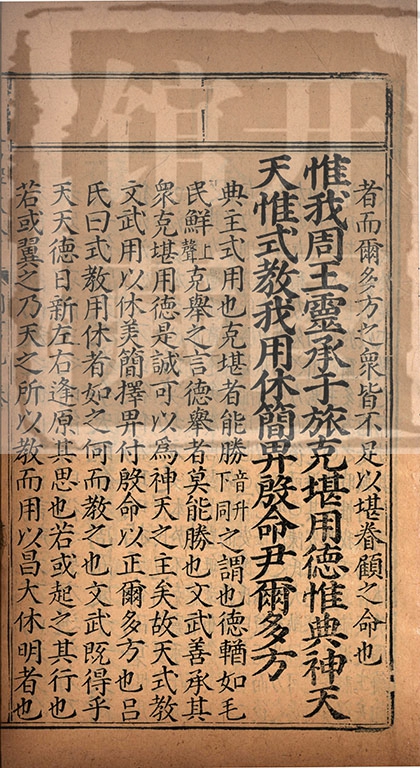 者而爾多方之衆皆不足以堪眷顧之命也
惟我周王靈承于旅克堪用德惟典神天
天惟式教我用休簡畀殷命尹爾多方
典主式用也克堪者能勝音升下同之謂也德輶如毛
民鮮上聲克舉之言德舉者莫能勝也文武善承其
衆克堪用德是誠可以爲神天之主矣故天式教
文武用以休美簡擇畀付殷命以正爾多方也呂
氏曰式教用休者如之何而教之也文武既得乎
天天德日新左右逢原其思也若或起之其行也
若或翼之乃天之所以教而用以昌大休明者也